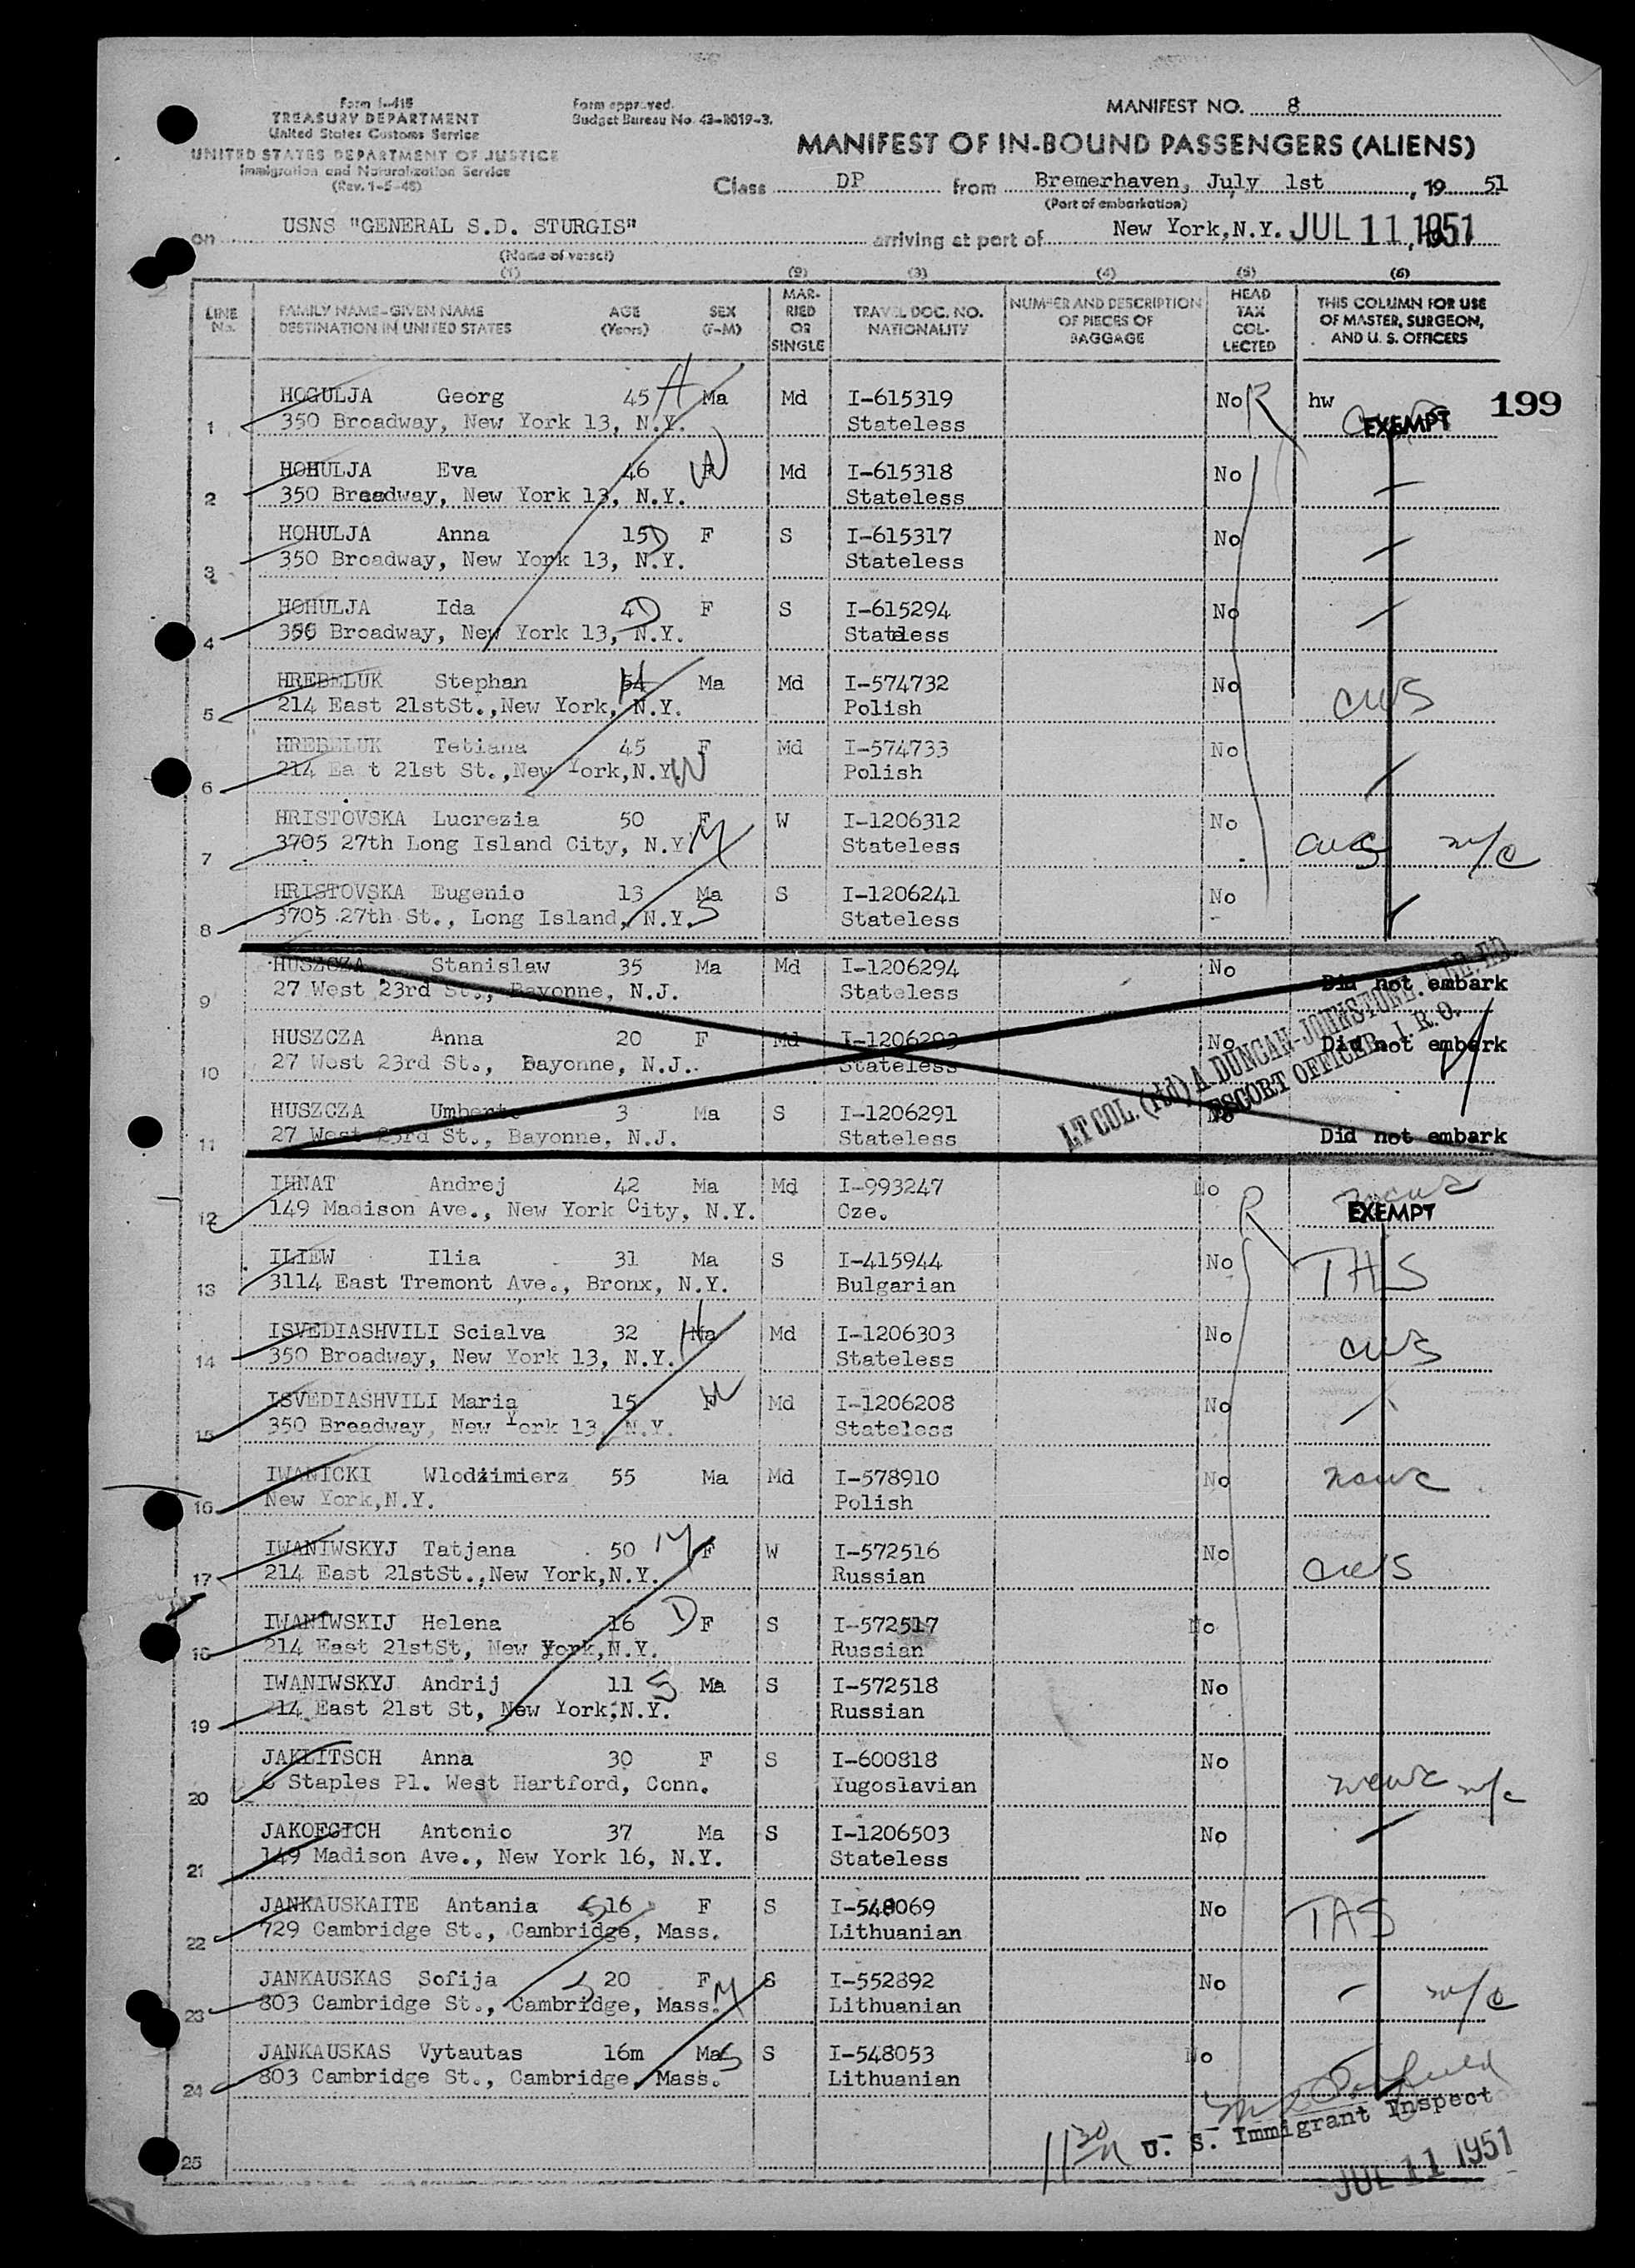 Form I-418
TREASURY DEPARTMENT
United States Customs Service
UNITED STATES DEPARTMENT OF JUSTICE
Immigration and Naturalization Service
(Rev. 1-5-48)
Form approved.
Budget Bureau No. 43-R019-3.
MANIFEST NO. 8
MANIFEST OF IN-BOUND PASSENGERS (ALIENS)
Class DP from Bremerhaven, July 1st, 19 51
(Port of embarkation)
on USNS "GENERAL S.D. STURGIS" arriving at port of New York,N.Y. JUL 11 1951
(Name of vessel)
(1) (2) (3) (4) (5) (6)
LINE No. FAMILY NAME-GIVEN NAME DESTINATION IN UNITED STATES AGE (Years) SEX (F-M) MARRIED OR SINGLE TRAVEL DOC. NO. NATIONALITY NUMBER AND DESCRIPTION OF PIECES OF BAGGAGE HEAD TAX COLLECTED THIS COLUMN FOR USE OF MASTER, SURGEON, AND U. S. OFFICERS
199
HOGULJA Georg 45 H Ma Md I-615319 No R hw
1 350 Broadway, New York 13, N.Y. Stateless EXEMPT
HOHULJA Eva 46 F W Md I-615318 No
2 350 Breadway, New York 13, N.Y. Stateless
HOHULJA Anna 15 D F S I-615317 No
3 350 Broadway, New York 13, N.Y. Stateless
HOHULJA Ida 4 D F S I-615294 No
4 350 Broadway, New York 13, N.Y. Stateless
HREBELUK Stephan 54 H Ma Md I-574732 No
5 214 East 21stSt.,New York, N.Y. Polish cws
HREBELUK Tetiana 45 F Md I-574733 No
6 214 Ea t 21st St.,New York,N.Y. W Polish
HRISTOVSKA Lucrezia 50 F W I-1206312 No
7 3705 27th Long Island City, N.Y. M Stateless cws m/c
HRISTOVSKA Eugenio 13 Ma S I-1206241 No
8 3705 27th St., Long Island, N.Y. S Stateless
HUSZCZA Stanislaw 35 Ma Md I-1206294 No Did not embark
9 27 West 23rd St., Bayonne, N.J. Stateless
HUSZCZA Anna 20 F Md I-1206293 No Did not embark
10 27 West 23rd St., Bayonne, N.J. Stateless
HUSZCZA Umberto 3 Ma S I-1206291 No
11 27 West 23rd St., Bayonne, N.J. Stateless Did not embark
LT COL. (rtd) A DUNCAN-JOHNSTONE.
ESCORT OFFICER I. R. O.
IHNAT Andrej 42 Ma Md I-993247 No R
12 149 Madison Ave., New York City, N.Y. Cze. EXEMPT
ILIEW Ilia 31 Ma S I-415944 No
13 3114 East Tremont Ave., Bronx, N.Y. Bulgarian THS
ISVEDIASHVILI Scialva 32 Ma H Md I-1206303 No
14 350 Broadway, New York 13, N.Y. Stateless cws
ISVEDIASHVILI Maria 15 F W Md I-1206208 No
15 350 Breadway, New York 13, N.Y. Stateless
IWANICKI Wlodzimierz 55 Ma Md I-578910 No
16 New York,N.Y. Polish
IWANIWSKYJ Tatjana 50 M F W I-572516 No
17 214 East 21stSt.,New York,N.Y. Russian cws
IWANIWSKIJ Helena 16 D F S I-572517 No
18 214 East 21stSt, New York,N.Y. Russian
IWANIWSKYJ Andrij 11 S Ma S I-572518 No
19 214 East 21st St, New York,N.Y. Russian
JAKLITSCH Anna 30 F S I-600818 No
20 6 Staples Pl. West Hartford, Conn. Yugoslavian m/c
JAKOEGICH Antonio 37 Ma S I-1206503 No
21 149 Madison Ave., New York 16, N.Y. Stateless
JANKAUSKAITE Antania S 16 F S I-548069 No
22 729 Cambridge St., Cambridge, Mass. Lithuanian TAS
JANKAUSKAS Sofija S 20 F S I-552892 No
23 803 Cambridge St., Cambridge, Mass. M Lithuanian m/c
JANKAUSKAS Vytautas 16m Ma S S I-548053 No
24 803 Cambridge St., Cambridge, Mass. Lithuanian
U. S. Immigrant Inspect
25
JUL 11 1951